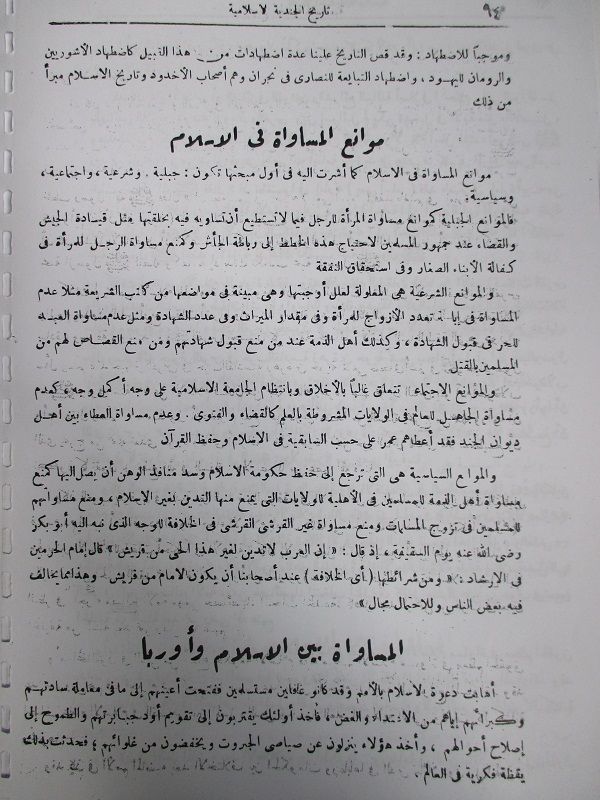 ٩٤ تاريخ الجندية الاسلامية
وموجباً للاضطهاد : وقد قص التاريخ علينا عدة اضطهادات من هذا القبيل كاضطهاد الآشوريين
والرومان لليهود ، واضطهاد التبابعة للنصارى فى نجران وهم أصحاب الأخدود وتاريخ الاسلام مبرأ
من ذلك
موانع المساواة فى الاسلام
موانع المساواة فى الاسلام كما أشرت اليه فى أول مبحثها تكون : جبلية . وشرعية ، واجتماعية ،
وسياسية .
فالموانع الجبلية كموانع مساواة المرأة للرجل فيما لا تستطيع أن تساويه فيه بخلقتها مثل قيادة الجيش
والقضاء عند جمهور المسلمين لاحتياج هذه الخطط إلى رباطة الجأش وكمنع مساواة الرجل للمرأة فى
كفالة الابناء الصغار وفى استحقاق النفقة
والموانع الشرعية هى المعلولة لعلل أوجبتها وهى مبينة فى مواضعها من كتب الشريعة مثلا عدم
المساواة فى إباحة تعدد الأزواج للمرأة وفى مقدار الميراث وفى عدد الشهادة ومثل عدم مساواة العبد
للحر فى قبول الشهادة ، وكذلك أهل الذمة عند من منع قبول شهادتهم ومن منع القصاص لهم من
المسلمين بالقتل
والموانع الاجتماعية تتعلق غالباً بالأخلاق وبانتظام الجامعة الاسلامية على وجه أكمل وجه ، كعدم
مساواة الجاهل للعالم فى الولايات المشروطة بالعلم كالقضاء والفتوى . وعدم مساواة العطاء بين أهل
ديوان الجند فقد أعطاهم عمر على حسب السابقية فى الاسلام وحفظ القرآن
والموانع السياسية هى التى ترجع إلى حفظ حكومة الاسلام وسد منافذ الوهن أن يصل اليها كمنع
مساواة أهل الذمة للمسلمين فى الأهلية للولايات التى يمنع منها التدين بغير الاسلام ، ومنع مساواتهم
للمسلمين فى تزوج المسلمات ومنع مساواة غير القرشى القرشى فى الخلافة للوجه الذى نبه اليه أبو بكر
رضى الله عنه يوم السقيفة ، إذ قال : « إن العرب لا تدين لغير هذا الحى من قريش » قال إمام الحرمين
فى الارشاد : « ومن شرائطها ( أى الخلافة ) عند أصحابنا أن يكون الامام من قريش . وهذا مما يخالف
فيه بعض الناس وللاحتمال مجال »
المساواة بين الاسلام وأوربا
أهابت دعوة الاسلام بالأمم وقد كانوا غافلين مستسلمين ففتحت أعينهم إلى ما فى معاملة سادتهم
وكبرائهم إياهم من الاعتداء والغض ، فأخذ أولئك يقتربون إلى تقويم أود جبابرتهم والطموح إلى
إصلاح أحوالهم ، وأخذ هؤلاء ينزلون عن صياصى الجبروت ويخفضون من غلوائهم ، فحدثت بذلك
يقظة فكرية فى العالم .